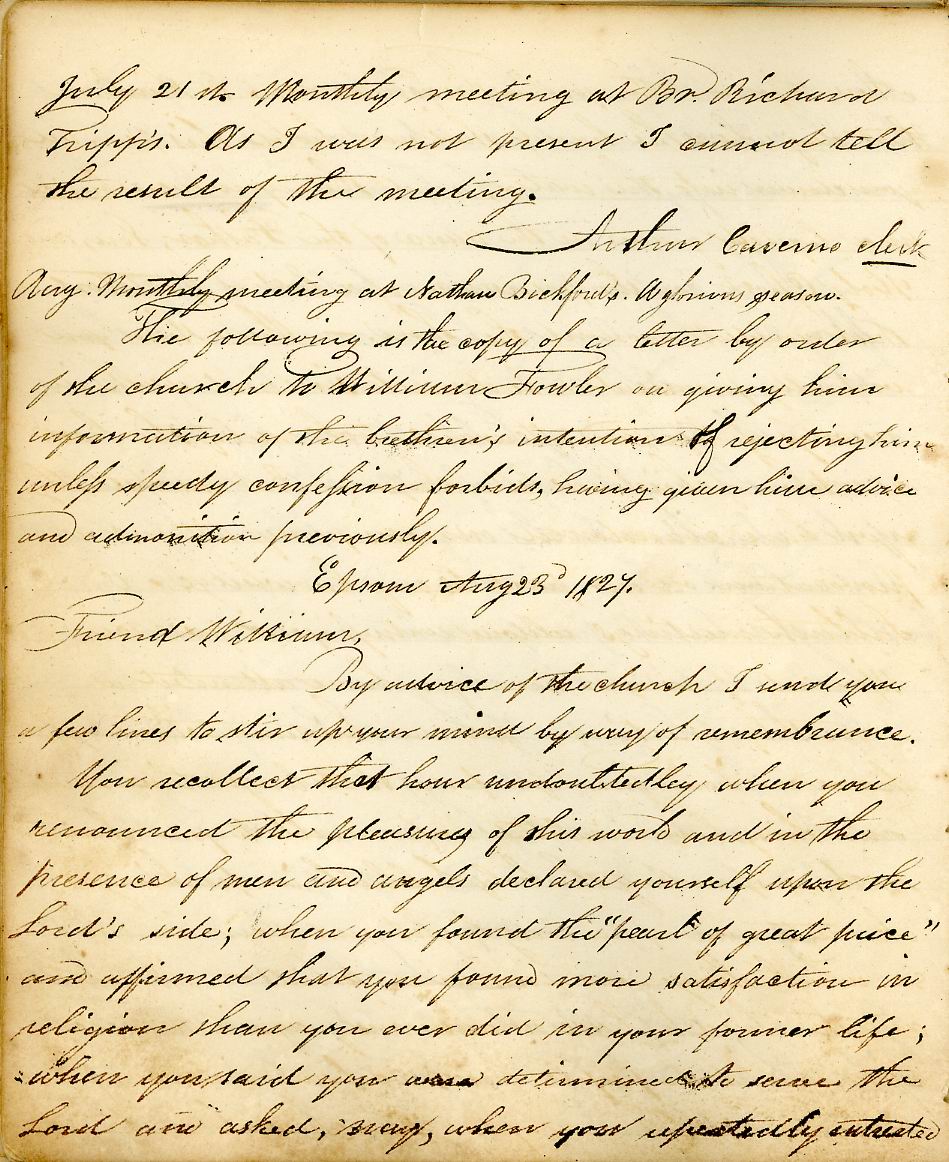 July 21st Monthly meeting at Br. Richard
Tripp's. As I was not present I cannot tell
the result of the meeting.
Arthur Caverno clerk
Aug. Monthly meeting at Nathan Bickford's. A glorious season.
The following is the copy of a letter by order
of the church to William Fowler on giving him
information of the brethren's intention of rejecting him
unless speedy confession forbids, having given him advice
and admonition previously.
Epsom Aug 23d 1827.
Friend William,
By advice of the church I send you
a few lines to stir up your mind by way of remembrance.
You recollect that hour undoubtedley when you
renounced the pleasures of this world and in the
presence of men and angels declared yourself upon the
Lord's side; when you found the "pearl of great price"
and affirmed that you found more satisfaction in
religion than you ever did in your former life;
when you said you were determined to serve the
Lord and asked, nay, when you repeatedly intreated